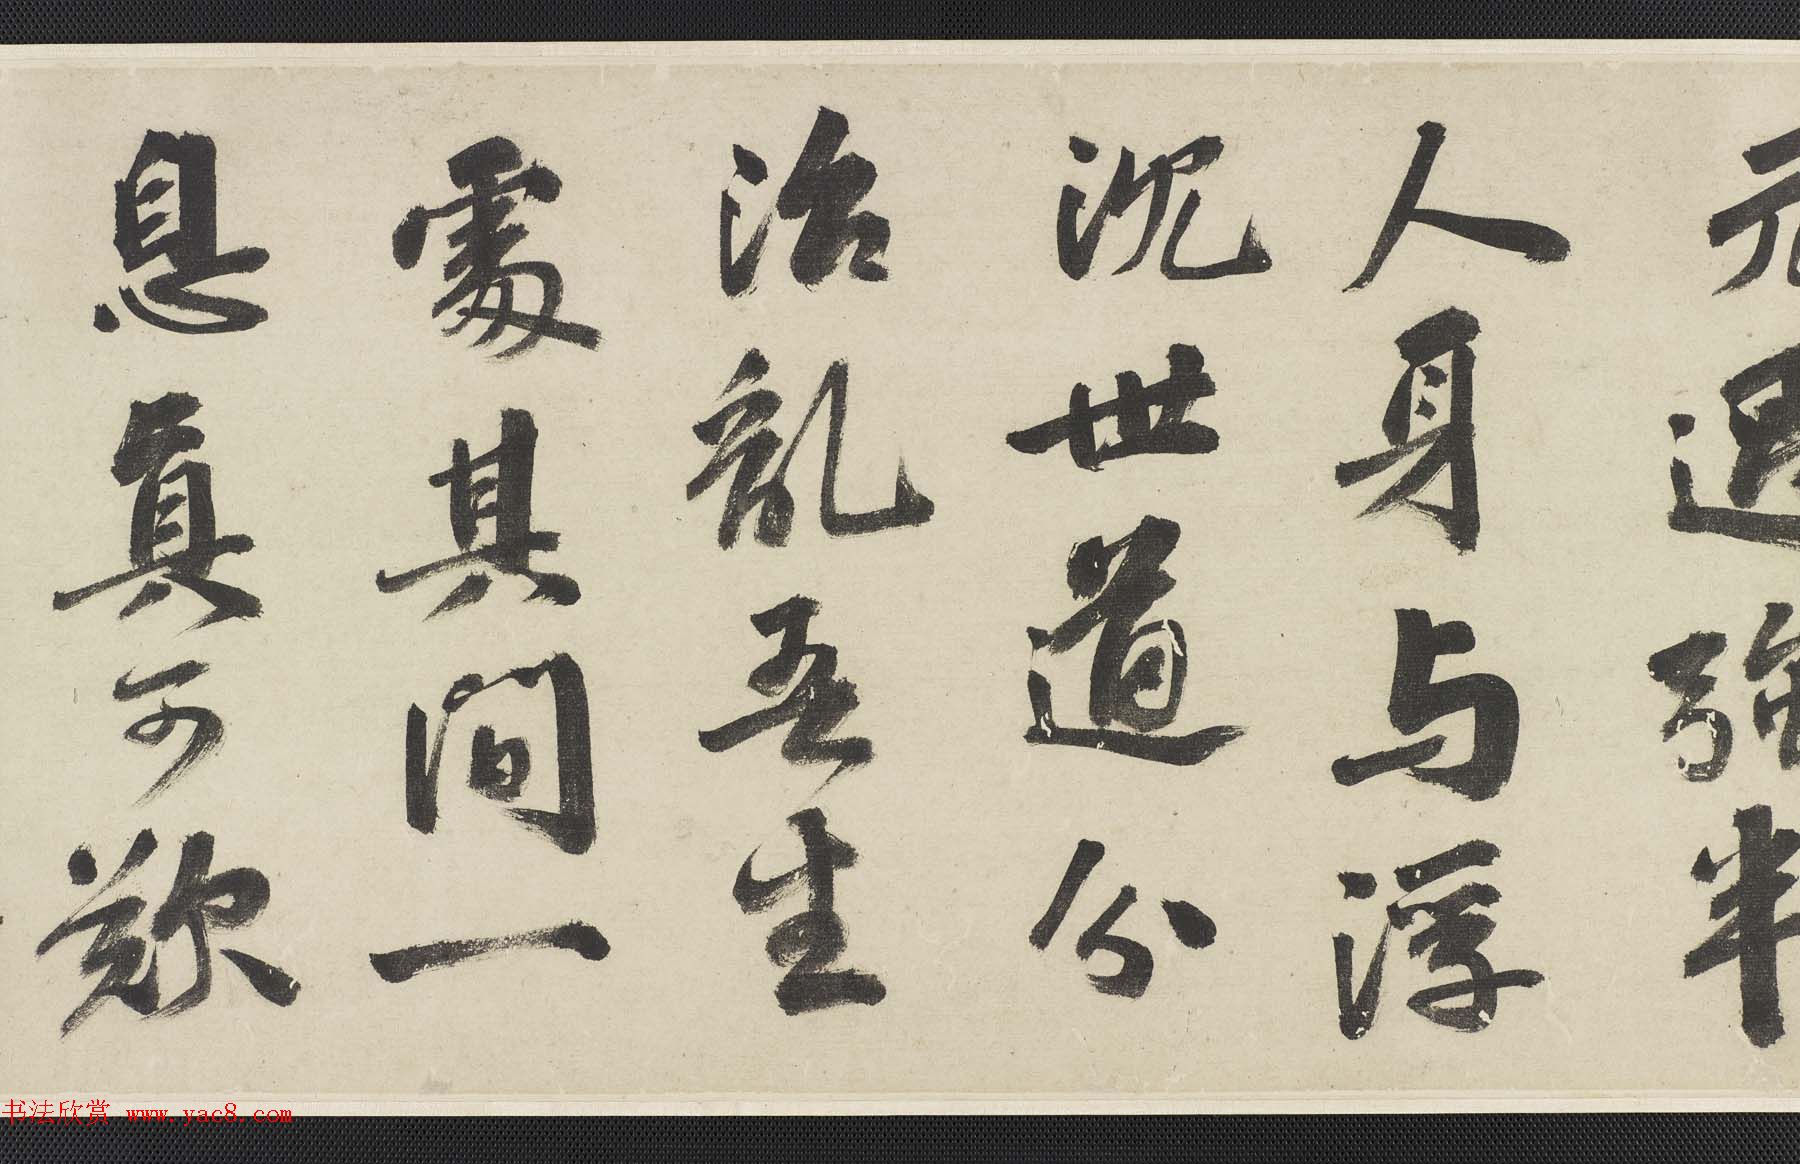 元遇強半
人身与浮
沉世道分
治亂吾生
處其間一
息真可歎
书法欣赏 www.yac8.com